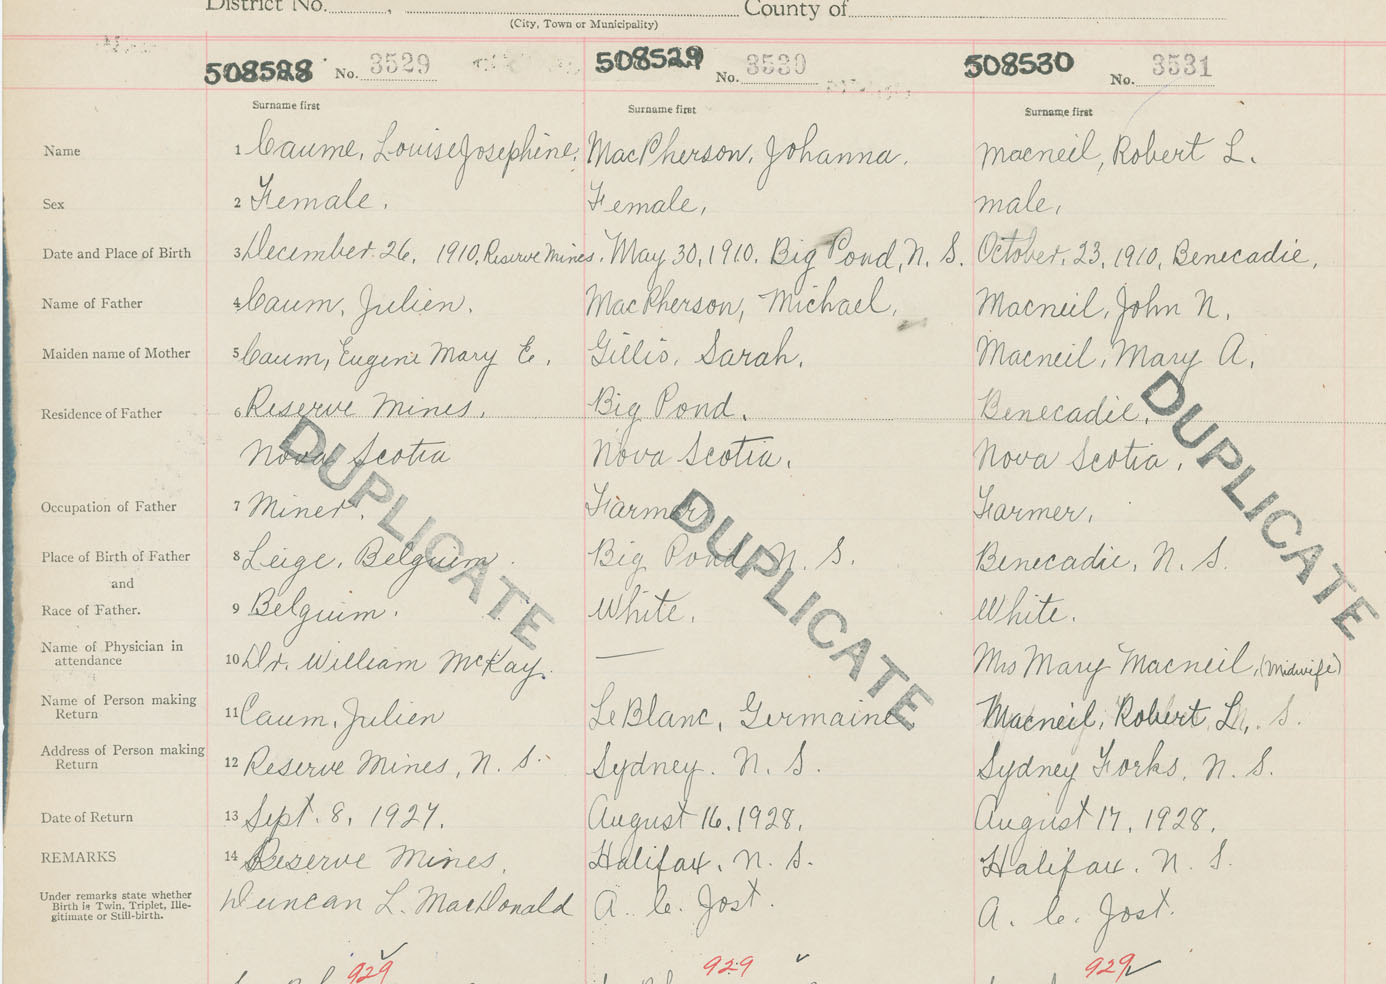 District No. , County of
(City, Town or Municipality)
508528 No. 3529 508529 No. 3530 508530 No. 3531
Surname first Surname first Surname first
Name 1 Caume, Louise Josephine. MacPherson, Johanna. Macneil, Robert L.
Sex 2 Female. Female, male,
Date and Place of Birth 3 December 26, 1910, Reserve Mines. May 30, 1910. Big Pond, N. S. October, 23, 1910, Benecadie,
Name of Father 4 Caum, Julien. MacPherson, Michael, Macneil, John N.
Maiden name of Mother 5 Caum, Eugeni Mary E. Gillis, Sarah. Macneil, Mary A.
Residence of Father 6 Reserve Mines. Big Pond. Benecadie.
Nova Scotia Nova Scotia. Nova Scotia.
Occupation of Father 7 Miner. Farmer Farmer.
Place of Birth of Father 8 Leige, Belguim. Big Pond N. S. Benecadie, N. S.
and
Race of Father. 9 Belguim. White. White.
Name of Physician in
attendance 10 Dr. William McKay. — Mrs Mary Macneil, (Midwife)
Name of Person making
Return 11 Caum, Julien LeBlanc, Germaine Macneil, Robert L. S.
Address of Person making
Return 12 Reserve Mines, N. S. Sydney. N. S. Sydney Forks, N. S.
Date of Return 13 Sept. 8, 1927. August 16, 1928. August 17, 1928.
REMARKS 14 Reserve Mines. Halifax, N. S. Halifax. N. S.
Under remarks state whether
Birth is Twin, Triplet, Ille-
gitimate or Still-birth.
Duncan L. MacDonald A. C. Jost. A. C. Jost.
929 929 929
DUPLICATE
DUPLICATE
DUPLICATE